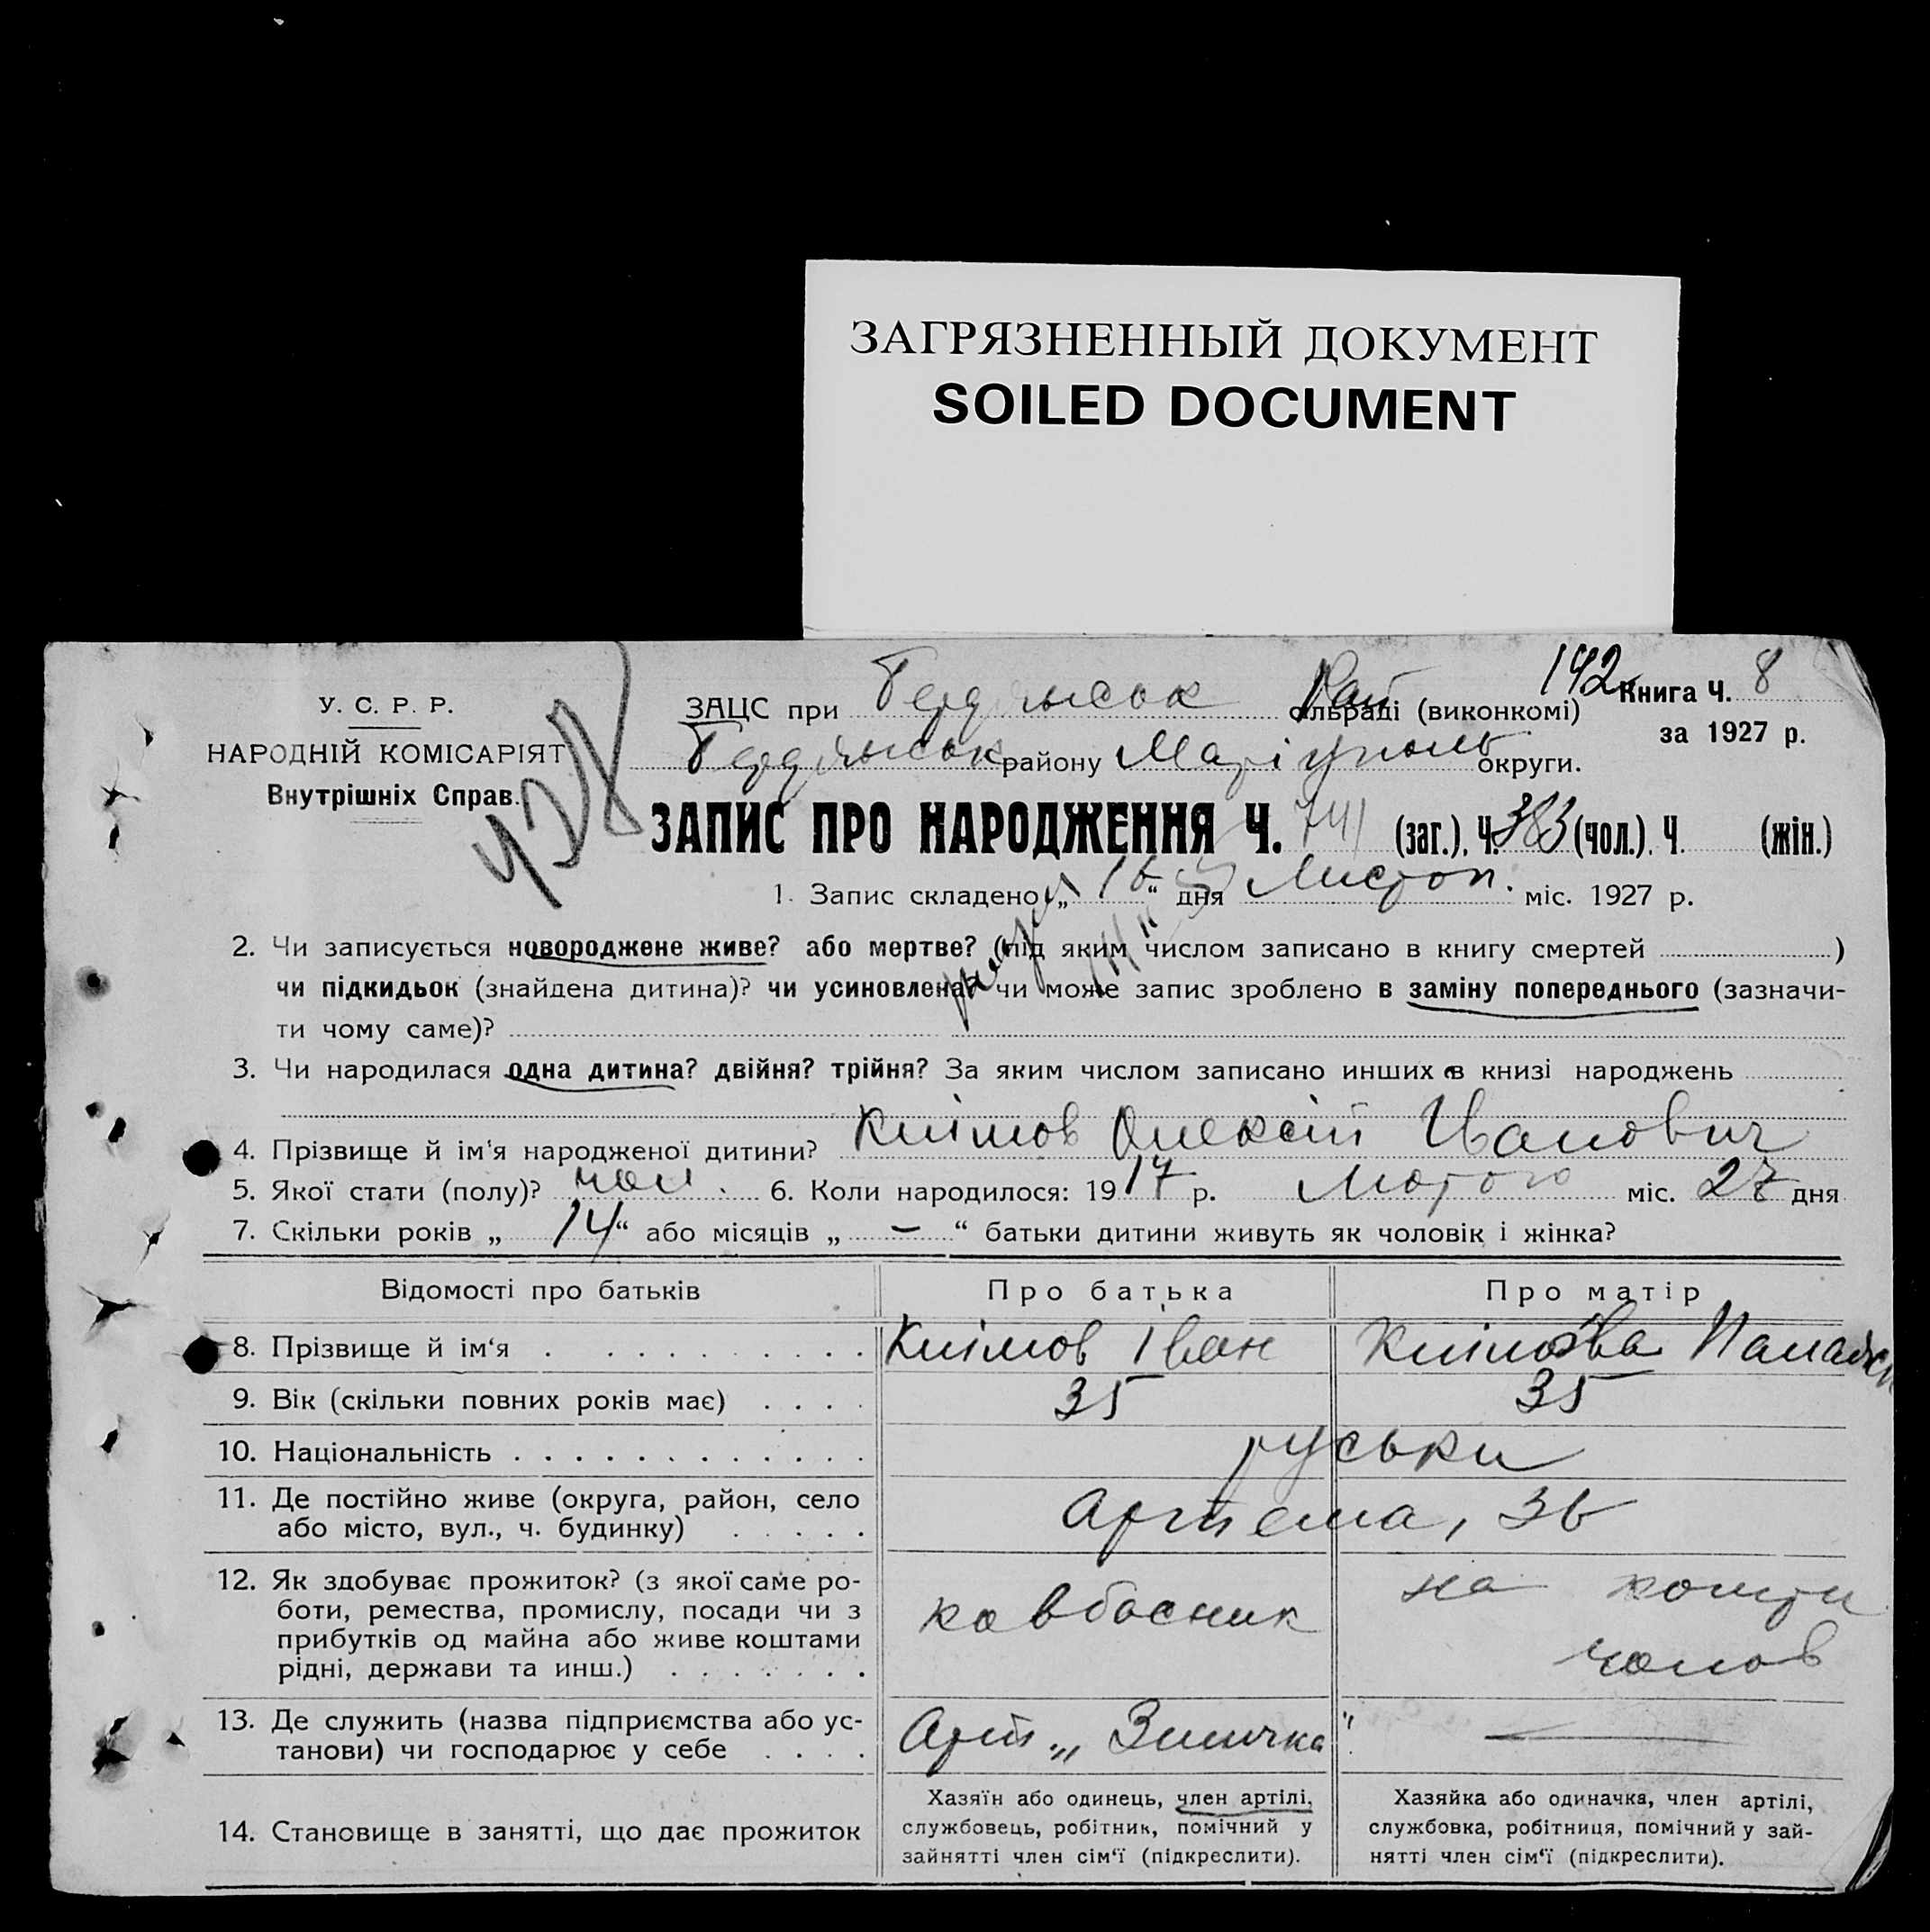 ЗАГРЯЗНЕННЫЙ ДОКУМЕНТ
SOILED DOCUMENT
142
У. С. Р. Р.
НАРОДНІЙ КОМІСАРІЯТ
Внутрішніх Справ.
428
ЗАЦС при Бердянськ Рай сільраді (виконкомі)
Книга Ч. 8
за 1927 р.
Бердянськ району Маріуполь округи.
ЗАПИС ПРО НАРОДЖЕННЯ Ч. 741 (заг.), Ч. 383 (чол.). Ч. (жін.)
1. Запис складено „ 16 “ дня Листоп. міс. 1927 р.
2. Чи записується новороджене живе? або мертве? (під яким числом записано в книгу смертей )
чи підкидьок (знайдена дитина)? чи усиновлена? чи може запис зроблено в заміну попереднього (зазначи-
ти чому саме)?
3. Чи народилася одна дитина? двійня? трійня? За яким числом записано инших в книзі народжень
4. Прізвище й ім‘я народженої дитини? Клімов Олексій Іванович
5. Якої стати (полу)? чол. 6. Коли народилося: 1917 р. Лютого міс. 27 дня
7. Скільки років „ 14 “ або місяців „ — “ батьки дитини живуть як чоловік і жінка?
Відомості про батьків Про батька Про матір
8. Прізвище й ім‘я Клімов Іван Клімова
9. Вік (скільки повних років має) 35 35
10. Національність руськи
11. Де постійно живе (округа, район, село
або місто, вул., ч. будинку) Артема, 36
12. Як здобуває прожиток? (з якої саме ро-
боти, ремества, промислу, посади чи з
прибутків од майна або живе коштами
рідні, держави та инш.)
ковбасник
на кошти
чолов
13. Де служить (назва підприємства або ус-
танови) чи господарює у себе
Арт „Змичка" —
14. Становище в занятті, що дає прожиток
Хазяїн або одинець, член артілі,
службовець, робітник, помічний у
зайнятті член сім‘ї (підкреслити).
Хазяйка або одиначка, член артілі,
службовка, робітниця, помічний у зай-
нятті член сім‘ї (підкреслити).